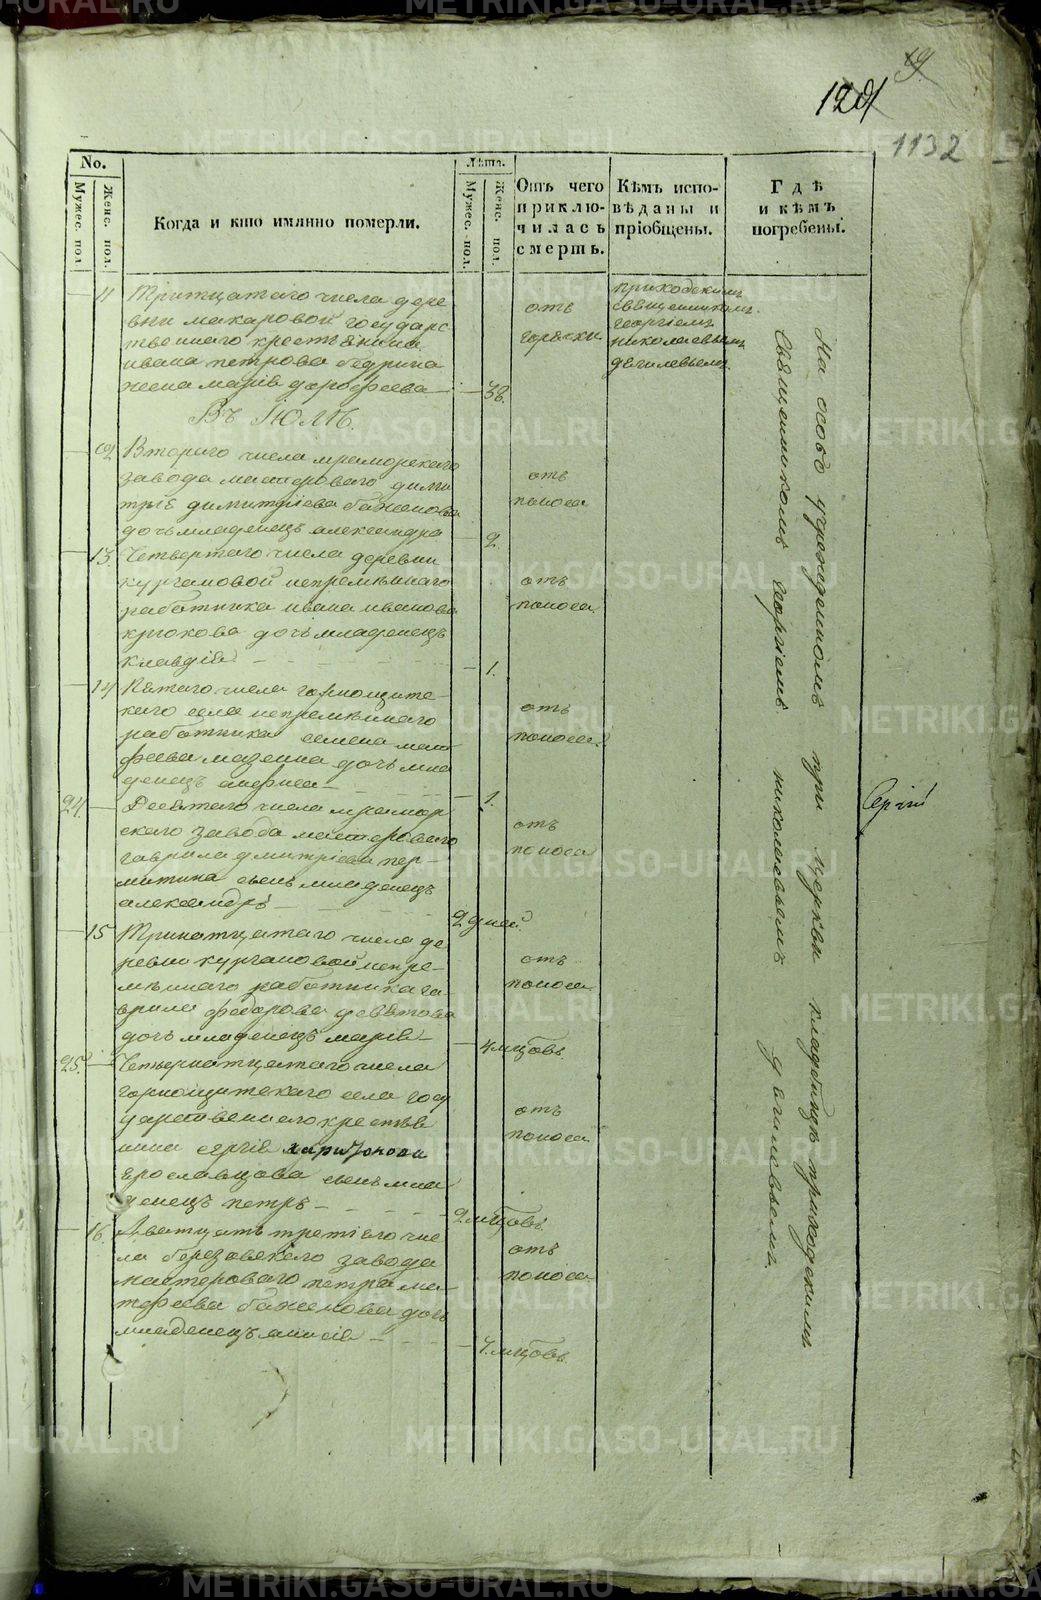 19
120
1132
No.
Мужес. пол
Женс. пол.
Когда и кто имянно померли.
Лѣта.
Мужес. пол.
Женс. пол.
Отъ чего
приклю-
чилась
смерть.
Кѣмъ испо-
вѣданы и
пріобщены.
Гдѣ
и кѣмъ
погребены.
11
Тритцатаго числа дере
вни макаровой государс
твеннаго крестьянина
ивана петрова
жена марія дорофеева
38.
отъ
горячки
приходскимъ
священникомъ
георгіемъ
николаевымъ
дягилевымъ.
Въ Іюлѣ.
12
Втораго числа мраморскаго
завода мастероваго дими
тріѣ димитріева баженова
дочь младенецъ александра
2
отъ
поноса
13.
Четвертаго числа деревни
кургановой непремѣннаго
работника ивана иванова
крюкова дочь младенецъ
клавдія
1.
отъ
поноса
14
Пятаго числа горнощитс-
каго села непремѣннаго
работника семена мат
феева мазеина дочь мла
денецъ анфиса
1.
отъ
поноса
24.
Десятаго числа мрамор
скаго завода мастероваго
гаврила дмитріева пер-
митина сынъ младенецъ
александръ
2 дней.
отъ
поноса
15
Тринатцатаго числа де
ревни кургановой непре-
мѣннаго работника га-
врила федорова девятова
дочь младенецъ марія
4 мцовъ.
отъ
поноса
25.
Четырнатцатаго числа
горнощитскаго села госу
дарственнаго крестья
нина сергія харитонова
ярославцова сынъ мла
денецъ петръ
2 мцовъ.
отъ
поноса
16.
Дватцать третіяго чис
ла березовскаго завода
мастероваго петра ма-
тфеева баженова дочь
младенецъ анисія
4. мцовъ.
отъ
поноса
На особо учрежденномъ при церкви кладбищѣ приходскимъ
священникомъ георгіемъ николаевымъ дягилевымъ.
Сергій
METRIKI.GASO-URAL.RU